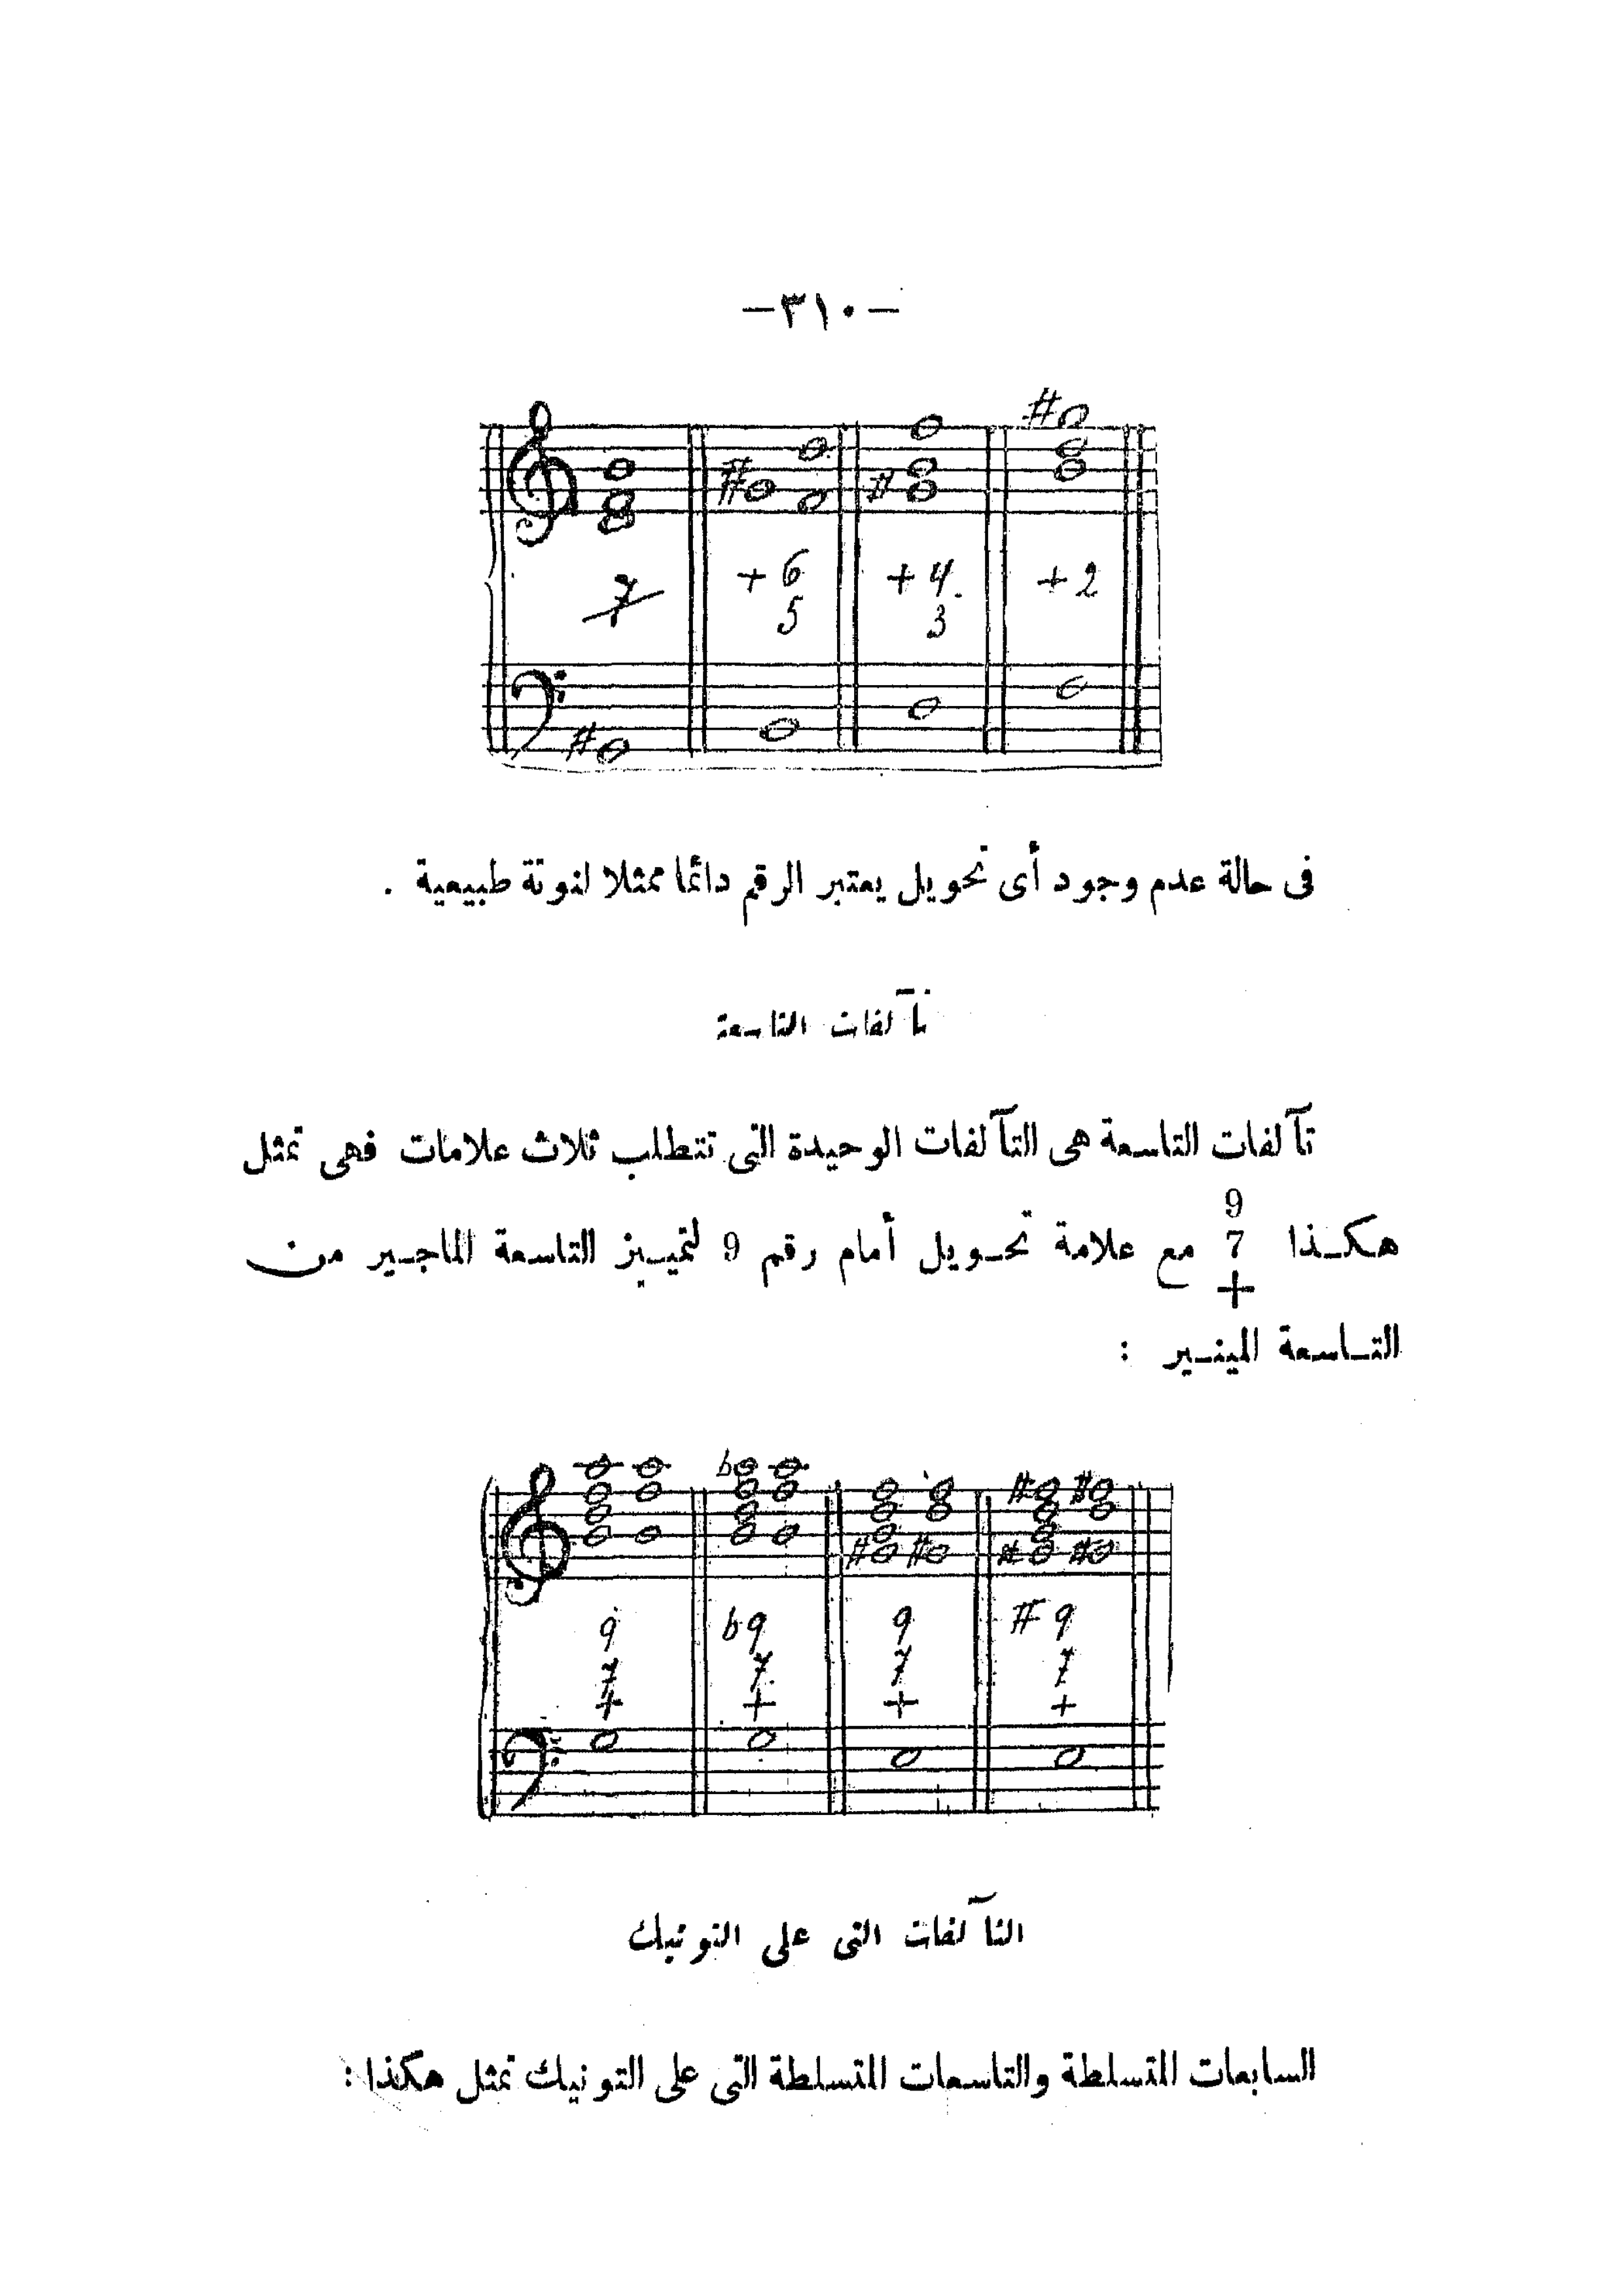 —٣١٠—
# # #
7 +6 +4 +2
5 3
#
فى حالة عدم وجود أى تحويل يعتبر الرقم دائما ممثلا لنوتة طبيعية .
تآلفات التاسعة
تآلفات التاسعة هى التآلفات الوحيدة التى تتطلب ثلاث علامات فهى تمثل
هكـذا 9 7 + مع علامة تحـويل أمام رقم 9 لتميـيز التاسعة الماجـير مـن
التـاسعة المينـير :
b # # # # # #
9 b9 9 #9
7 7 7 7
+ + + +
التآلفات التى على التونيك
السابعات المتسلطة والتاسعات المتسلطة التى على التونيك تمثل هكذا :